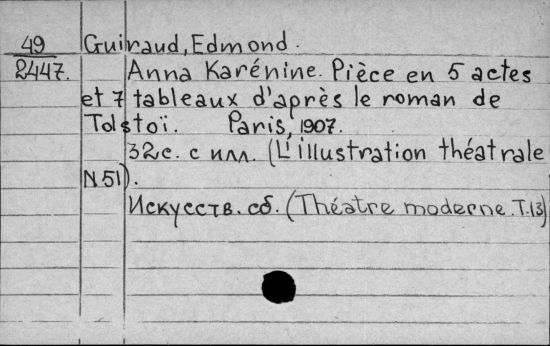 49 Guiraud, Edmond.
2447. Anna Karénine. Pièce en 5 actes
et 7 tableaux d'après le roman de
Tolstoï. Paris, 1907.
32с. с илл. (L'illustration théatrale
N 51).
Искусств. сб. (Théatre moderne. T.13)